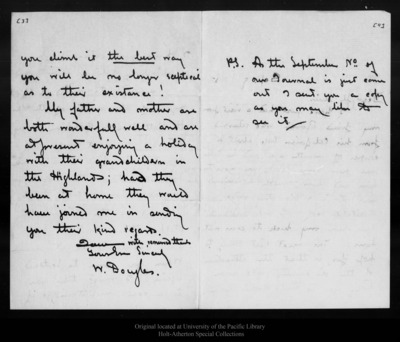 you climb it the best way
you will be no longer sceptical
as to their existence!
My father and mother are
both wonderfully well and are
at present enjoying a holiday
with their grandchildren in
the Highlands; had they
been at home they would
have joined me in sending
you their kind regards.
with renewed thanks
Yours Sincerely
W. Douglas.
P.S. As the September No. of
our Journal is just come
out I send you a copy
as you may like to
see it
Original located at University of the Pacific Library
Holt-Atherton Special Collections